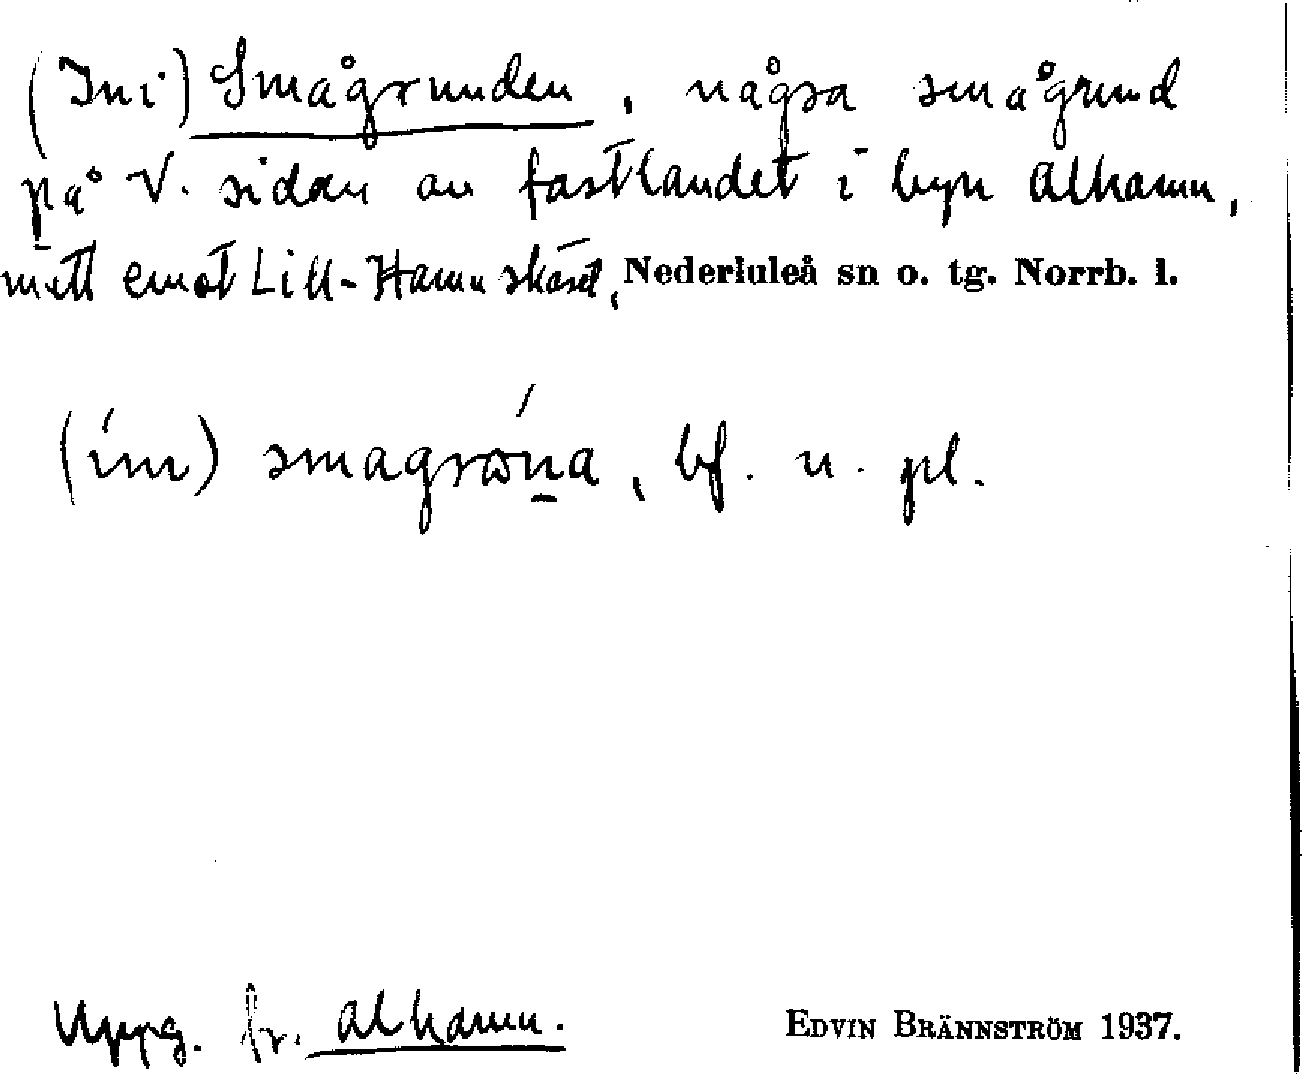 (Ini) Smågrunden, några smågrund
på V. sidan av fastlandet i byn Alhamn,
mitt emot Lill-Hamnskäret, Nederluleå sn o. tg. Norrb. l.
bf. n. pl.
Uppg. fr. Alhamn. EDVIN BRÄNNSTRÖM 1937.